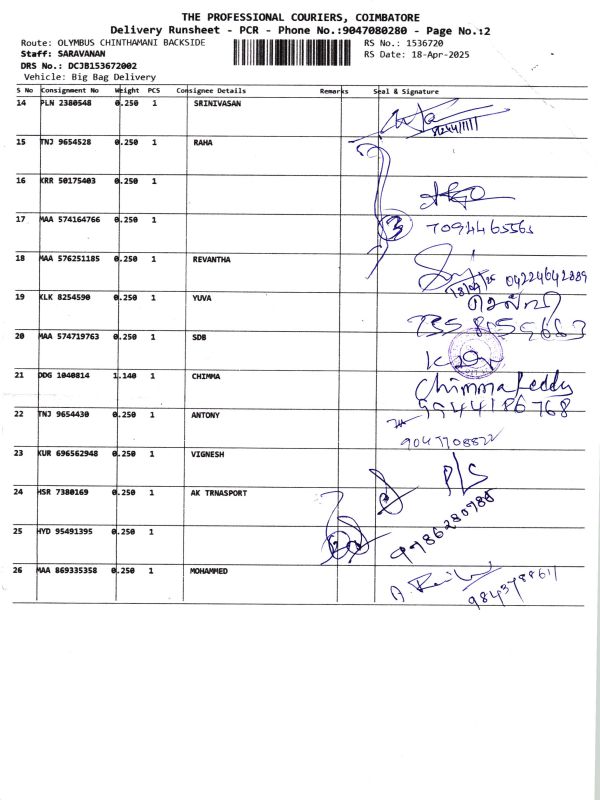 THE PROFESSIONAL COURIERS, COIMBATORE
Delivery Runsheet - PCR - Phone No.:9047080280 - Page No.:2
Route: OLYMBUS CHINTHAMANI BACKSIDE RS No.: 1536720
Staff: SARAVANAN RS Date: 18-Apr-2025
DRS No.: DCJB153672002
Vehicle: Big Bag Delivery
S No Consignment No Weight PCS Consignee Details Remarks Seal & Signature
14 PLN 2380548 0.250 1 SRINIVASAN
15 TNJ 9654528 0.250 1 RAHA
16 KRR 50175403 0.250 1
17 MAA 574164766 0.250 1 3 7094465565
18 MAA 576251185 0.250 1 REVANTHA 18/04/25 04224642889
19 KLK 8254590 0.250 1 YUVA
20 MAA 574719763 0.250 1 SDB
21 DDG 1040814 1.140 1 CHIMMA Chimma Reddy
9944186768
22 TNJ 9654430 0.250 1 ANTONY
23 KUR 696562948 0.250 1 VIGNESH P/S
24 HSR 7380169 0.250 1 AK TRNASPORT
9786280788
25 HYD 95491395 0.250 1
26 MAA 869335358 0.250 1 MOHAMMED